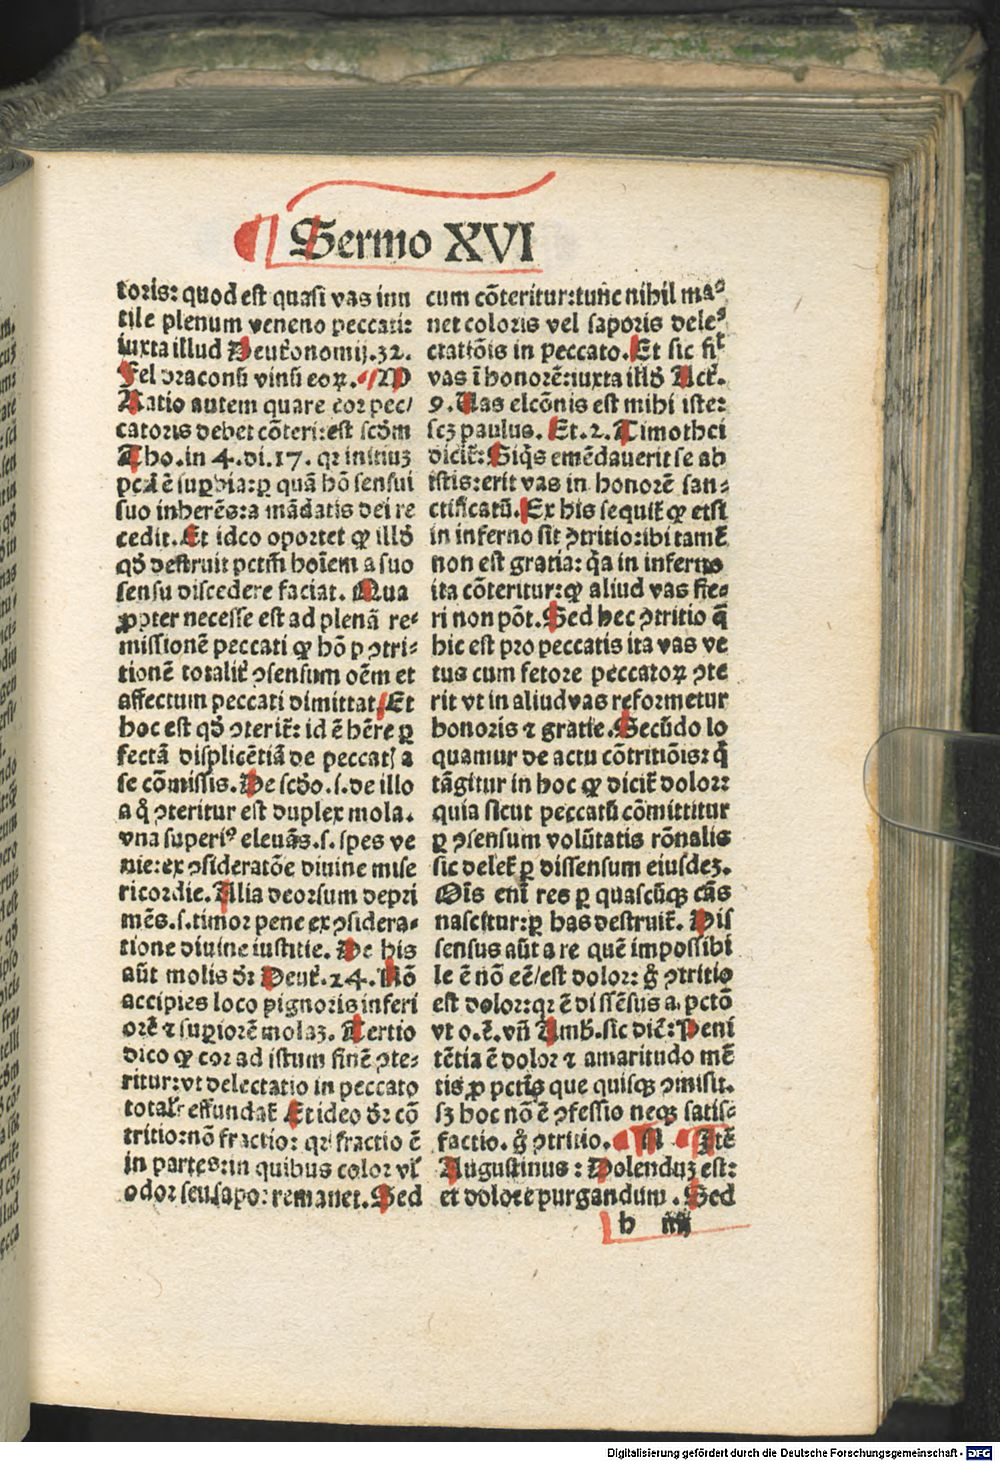 ¶ Sermo XVI
toris: quod est quasi vas inu
tile plenum veneno peccati:
iuxta illud Deutronomij. 32.
Fel draconū vinū eoꝝ. ¶ M
Ratio autem quare cor pec/
catoris debet cōteri: est scd̄m
Tho. in 4. di. 17. qr initiuꝫ
pctī ē suꝑbia: ꝑ quā hō sensui
suo inherēs: a mādatis dei re
cedit. Et ideo oportet ꝙ illd̄
qd̄ destruit pctm̄ hoīem a suo
sensu discedere faciat. Qua
ꝓpter necesse est ad plenā re-
missionē peccati ꝙ hō p ꝯtri-
tionē totalit̄ ꝯsensum oēm et
affectum peccati dimittat. Et
hoc est qd̄ ꝯterit̄: id ē hr̄e ꝑ
fectā displicētiā de peccatꝭ a
se cōmissis. De scd̄o .s. de illo
a q̄ ꝯteritur est duplex mola.
vna superiꝰ eleuās .s. spes ve
nie: ex ꝯsideratōe diuine mise
ricordie. Alia deorsum depri
mēs .s. timor pene ex ꝯsidera-
tione diuine iustitie. De his
aūt molis dr̄ Deut̄. 24. Nō
accipies loco pignoris inferi
orē ⁊ suꝑiorē molaꝫ. Tertio
dico ꝙ cor ad istum finē ꝯte-
ritur: vt delectatio in peccato
totalr̄ effundat̄ Et ideo dr̄ cō
tritio: nō fractio: qr fractio ē
in partes: in quibus color vl̄
odor seu sapor remanet. Sed
cum cōteritur: tunc nihil ma-
net coloris vel saporis dele-
ctatiōis in peccato. Et sic fit̄
vas ī honorē: iuxta illd̄ Act̄.
9. Uas electiōnis est mihi iste:
scꝫ paulus. Et. 2. Timothei
dicit̄: Siq̄s emēdauerit se ab
istis: erit vas in honorē san-
ctificatū. Ex his sequit̄ ꝙ etsi
in inferno sit ꝯtritio: ibi tamē
non est gratia: q̄a in inferno
ita cōteritur: ꝙ aliud vas fie-
ri non pōt. Sed hec ꝯtritio q̄
hic est pro peccatis ita vas ve
tus cum fetore peccatoꝝ ꝯte
rit vt in aliud vas reformetur
honoris ⁊ gratie. Secūdo lo
quamur de actu cōtritiōis: q̄
tāgitur in hoc ꝙ dicit̄ dolor:
quia sicut peccatū cōmittitur
ꝑ ꝯsensum volūtatis rōnalis
sic delet̄ ꝑ dissensum eiusdeꝫ.
Oīs enī res ꝑ quascūqꝫ cās
nascitur: ꝑ has destruit̄. Dis
sensus aūt a re quē impossibi
le ē nō eē/est dolor: g̊ ꝯtritio
est dolor: qr ē dissēsus a pctō
vt o.ē. vn̄ Amb. sic dic̄: Peni
tētia ē dolor ⁊ amaritudo mē
tis ꝓ pctīs que quisqꝫ ꝯmisit.
sꝫ hoc nō ē ꝯfessio neqꝫ satis-
factio. g̊ ꝯtritio. ¶ N ¶ Itē
Augustinus: Dolenduꝫ est:
et dolore purgandum. Sed
b iiij
Digitalisierung gefördert durch die Deutsche Forschungsgemeinschaft - DFG